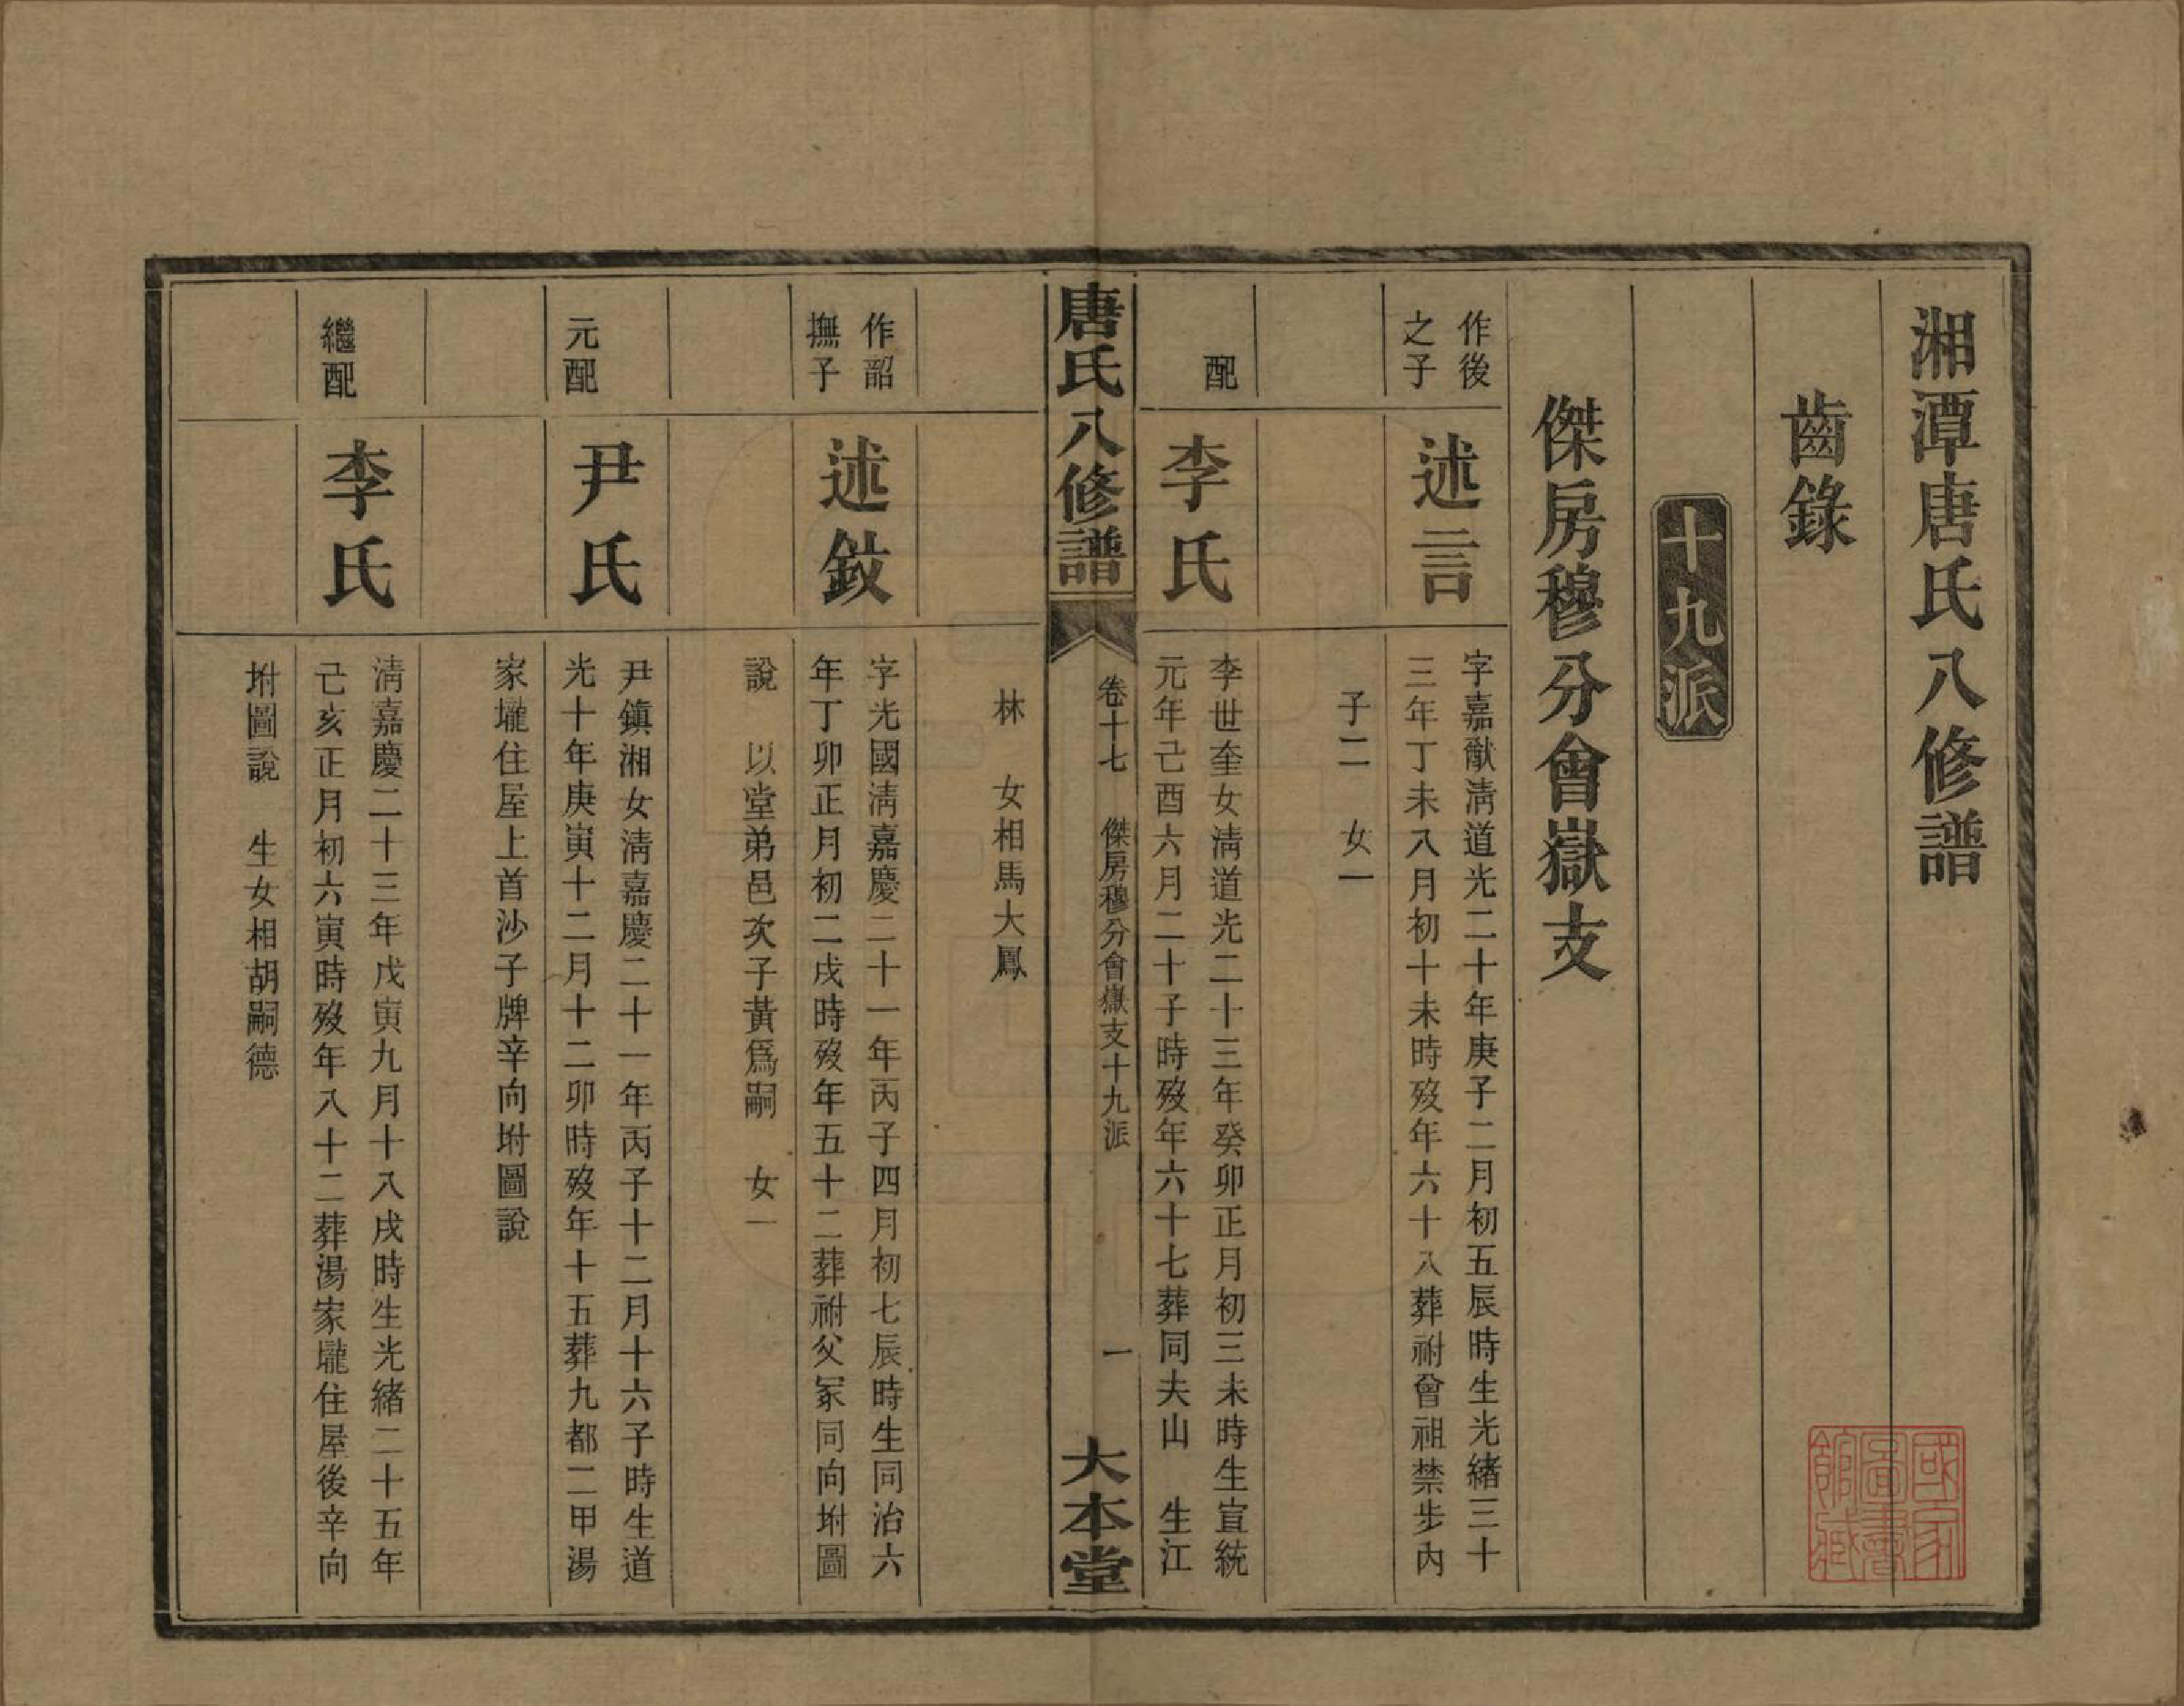 湘潭唐氏八修譜
齒錄
十九派
傑房穆分會嶽支
作後
之子
述言
字嘉猷淸道光二十年庚子二月初五辰時生光緒三十
三年丁未八月初十未時歿年六十八葬祔曾祖禁步內
子二　女一
配
李氏
李世奎女淸道光二十三年癸卯正月初三未時生宣統
元年己酉六月二十子時歿年六十七葬同夫山　生江
唐氏八修譜
卷十七　傑房穆分會嶽支十九派
一
大本堂
林　女相馬大鳳
作韶
撫子
述敘
字光國淸嘉慶二十一年丙子四月初七辰時生同治六
年丁卯正月初二戌時歿年五十二葬祔父冢同向坿圖
說　以堂弟邑次子黃爲嗣　女一
元配
尹氏
尹鎭湘女淸嘉慶二十一年丙子十二月十六子時生道
光十年庚寅十二月十二卯時歿年十五葬九都二甲湯
家壠住屋上首沙子牌辛向坿圖說
繼配
李氏
淸嘉慶二十三年戊寅九月十八戌時生光緒二十五年
己亥正月初六寅時歿年八十二葬湯家壠住屋後辛向
坿圖說　生女相胡嗣德
國家
圖書
館藏